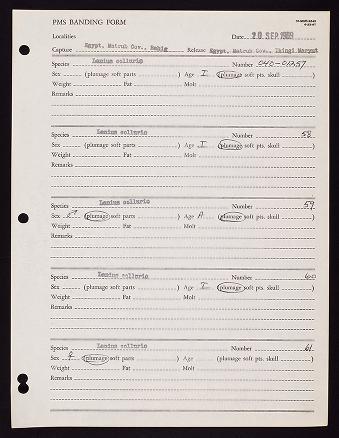 PMS BANDING FORM
Localities Date 20 SEP. 1968
Capture Egypt, Matruh Gov., Bahig Release Egypt, Matruh Gov., Ikingi Maryut
Species Lanius collurio Number 040-01257
Sex (plumage soft parts ) Age I (plumage soft pts. skull )
Weight Fat Molt
Remarks
Species Lanius collurio Number 58
Sex (plumage soft parts ) Age I (plumage soft pts. skull )
Weight Fat Molt
Remarks
Species Lanius collurio Number 59
Sex ♂ (plumage soft parts ) Age A (plumage soft pts. skull )
Weight Fat Molt
Remarks
Species Lanius collurio Number 60
Sex (plumage soft parts ) Age I (plumage soft pts. skull )
Weight Fat Molt
Remarks
Species Lanius collurio Number 61
Sex ♀ (plumage soft parts ) Age (plumage soft pts. skull )
Weight Fat Molt
Remarks